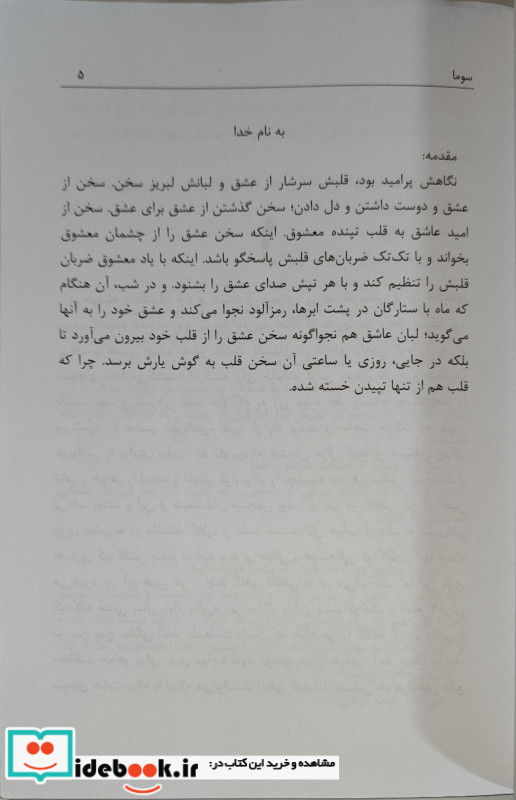 سوما
۵
به نام خدا
مقدمه:
نگاهش پرامید بود، قلبش سرشار از عشق و لبانش لبریز سخن. سخن از
عشق و دوست داشتن و دل دادن؛ سخن گذشتن از عشق برای عشق. سخن از
امید عاشق به قلب تپنده معشوق. اینکه سخن عشق را از چشمان معشوق
بخواند و با تک‌تک ضربان‌های قلبش پاسخگو باشد. اینکه با یاد معشوق ضربان
قلبش را تنظیم کند و با هر تپش صدای عشق را بشنود. و در شب، آن هنگام
که ماه با ستارگان در پشت ابرها، رمزآلود نجوا می‌کند و عشق خود را به آنها
می‌گوید؛ لبان عاشق هم نجواگونه سخن عشق را از قلب خود بیرون می‌آورد تا
بلکه در جایی، روزی یا ساعتی آن سخن قلب به گوش یارش برسد. چرا که
قلب هم از تنها تپیدن خسته شده.
مشاهده و خرید این کتاب در:
idebook.ir